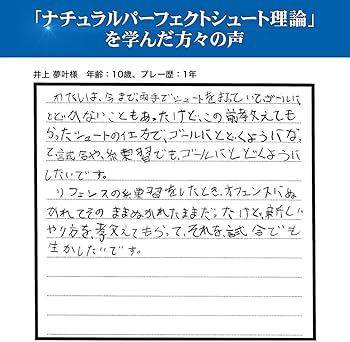 「ナチュラルパーフェクトシュート理論」
を学んだ方々の声
井上 夢叶様　年齢：10歳、プレー歴：1年
わたしは、今まで両手でシュートを打っていて、ゴールに
とどかないこともあったけど、この前教えても
らったシュートのイ土方で、ゴールにとどくようになっ
て試合や、練習でも、ゴールにとどくように
したいです。
リフェンスの練習をしたとき、オフェンスにぬ
かれてそのままぬかれたままだったけど、新しい
やり方を、教えてもらって、それを、試合でも
生かしたいです。